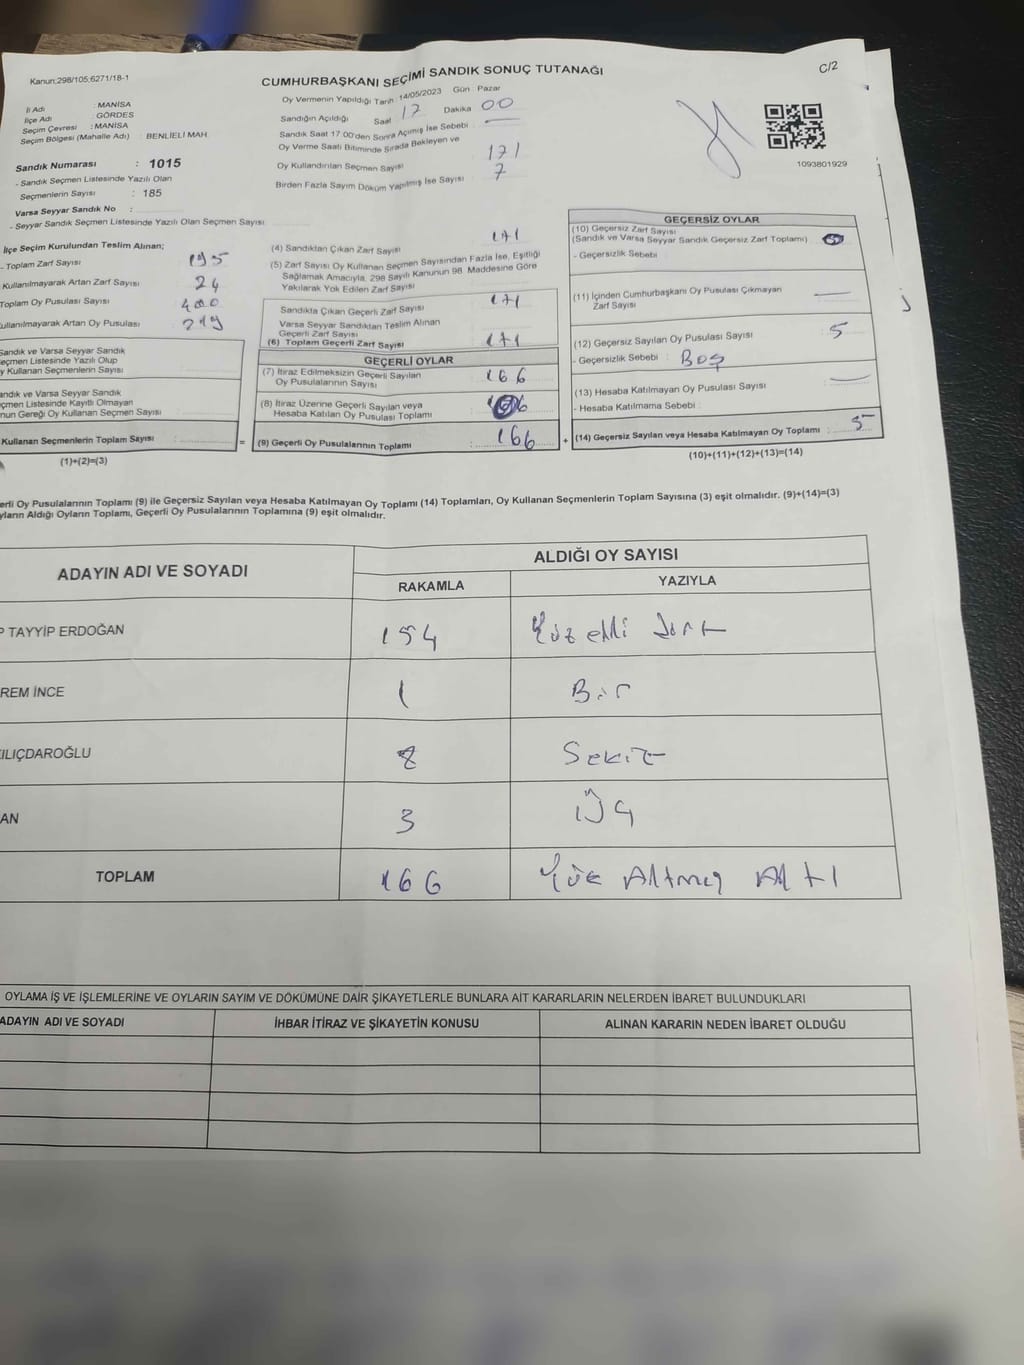 Kanun:298/105;6271/18-1
CUMHURBAŞKANI SEÇİMİ SANDIK SONUÇ TUTANAĞI
C/2
İl Adı : MANİSA
İlçe Adı : GÖRDES
Seçim Çevresi : MANİSA
Seçim Bölgesi (Mahalle Adı) BENLİELİ MAH.
Sandık Numarası : 1015
- Sandık Seçmen Listesinde Yazılı Olan
Seçmenlerin Sayısı : 185
Varsa Seyyar Sandık No :
- Seyyar Sandık Seçmen Listesinde Yazılı Olan Seçmen Sayısı
Oy Vermenin Yapıldığı Tarih 14/05/2023 Gün : Pazar
Sandığın Açıldığı Saat 17 Dakika 00
Sandık Saat 17.00'den Sonra Açımış İse Sebebi :
Oy Verme Saati Bitiminde Sırada Bekleyen ve
Oy Kullandırılan Seçmen Sayısı 171
Birden Fazla Sayım Döküm Yapılmış İse Sayısı 7
1093801929
İlçe Seçim Kurulundan Teslim Alınan;
- Toplam Zarf Sayısı 195
Kullanılmayarak Artan Zarf Sayısı 24
Toplam Oy Pusulası Sayısı 400
ullanılmayarak Artan Oy Pusulası 219
Sandık ve Varsa Seyyar Sandık
eçmen Listesinde Yazılı Olup
y Kullanan Seçmenlerin Sayısı
andık ve Varsa Seyyar Sandık
çmen Listesinde Kayıtlı Olmayan
nun Gereği Oy Kullanan Seçmen Sayısı
Kullanan Seçmenlerin Toplam Sayısı : =
(1)+(2)=(3)
(4) Sandıktan Çıkan Zarf Sayısı 171
(5) Zarf Sayısı Oy Kullanan Seçmen Sayısından Fazla İse, Eşitliği
Sağlamak Amacıyla, 298 Sayılı Kanunun 98. Maddesine Göre
Yakılarak Yok Edilen Zarf Sayısı
Sandıkta Çıkan Geçerli Zarf Sayısı 171
Varsa Seyyar Sandıktan Teslim Alınan
Geçerli Zarf Sayısı
(6) Toplam Geçerli Zarf Sayısı 171
GEÇERLİ OYLAR
(7) İtiraz Edilmeksizin Geçerli Sayılan
Oy Pusulalarının Sayısı 166
(8) İtiraz Üzerine Geçerli Sayılan veya
Hesaba Katılan Oy Pusulası Toplamı
(9) Geçerli Oy Pusulalarının Toplamı : 166 +
GEÇERSİZ OYLAR
(10) Geçersiz Zarf Sayısı
(Sandık ve Varsa Seyyar Sandık Geçersiz Zarf Toplamı)
- Geçersizlik Sebebi :
(11) İçinden Cumhurbaşkanı Oy Pusulası Çıkmayan
Zarf Sayısı
(12) Geçersiz Sayılan Oy Pusulası Sayısı 5
- Geçersizlik Sebebi : Boş
(13) Hesaba Katılmayan Oy Pusulası Sayısı
- Hesaba Katılmama Sebebi :
(14) Geçersiz Sayılan veya Hesaba Katılmayan Oy Toplamı : 5
(10)+(11)+(12)+(13)=(14)
erli Oy Pusulalarının Toplamı (9) ile Geçersiz Sayılan veya Hesaba Katılmayan Oy Toplamı (14) Toplamları, Oy Kullanan Seçmenlerin Toplam Sayısına (3) eşit olmalıdır. (9)+(14)=(3)
yların Aldığı Oyların Toplamı, Geçerli Oy Pusulalarının Toplamına (9) eşit olmalıdır.
ADAYIN ADI VE SOYADI
ALDIĞI OY SAYISI
RAKAMLA YAZIYLA
P TAYYİP ERDOĞAN 154 Yüz elli dört
REM İNCE 1 Bir
ILIÇDAROĞLU 8 Sekiz
AN 3 Üç
TOPLAM 166 Yüz Altmış Altı
OYLAMA İŞ VE İŞLEMLERİNE VE OYLARIN SAYIM VE DÖKÜMÜNE DAİR ŞİKAYETLERLE BUNLARA AİT KARARLARIN NELERDEN İBARET BULUNDUKLARI
ADAYIN ADI VE SOYADI İHBAR İTİRAZ VE ŞİKAYETİN KONUSU ALINAN KARARIN NEDEN İBARET OLDUĞU